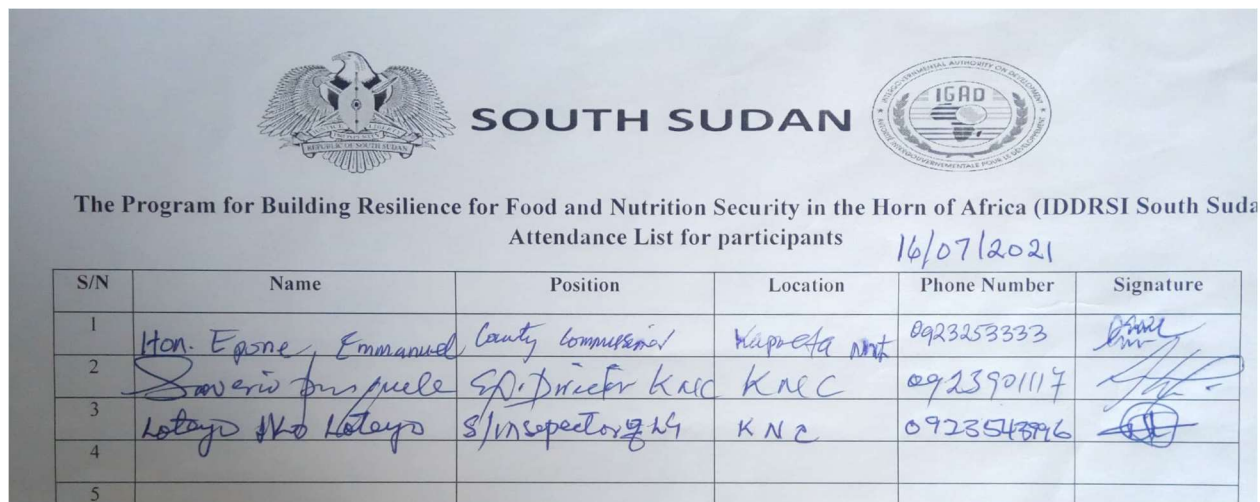 SOUTH SUDAN
REPUBLIC OF SOUTH SUDAN
INTERGOVERNMENTAL AUTHORITY ON DEVELOPMENT
IGAD
AUTORITE INTERGOUVERNEMENTALE POUR LE DÉVELOPPEMENT
The Program for Building Resilience for Food and Nutrition Security in the Horn of Africa (IDDRSI South Suda
Attendance List for participants 16/07/2021
S/N Name Position Location Phone Number Signature
1 Hon. Epone, Emmanuel County Commissioner Kapoeta 0923253333
2 Saverio EX. Director KNEC KNEC 0923901117
3 Loteyo Loteyo S/insepector LG KNC
4
5